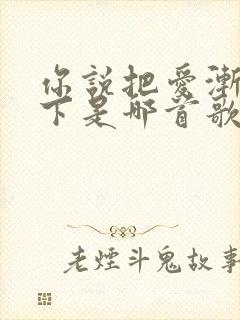 你說把愛漸
下是哪首歌
老煙斗鬼故事